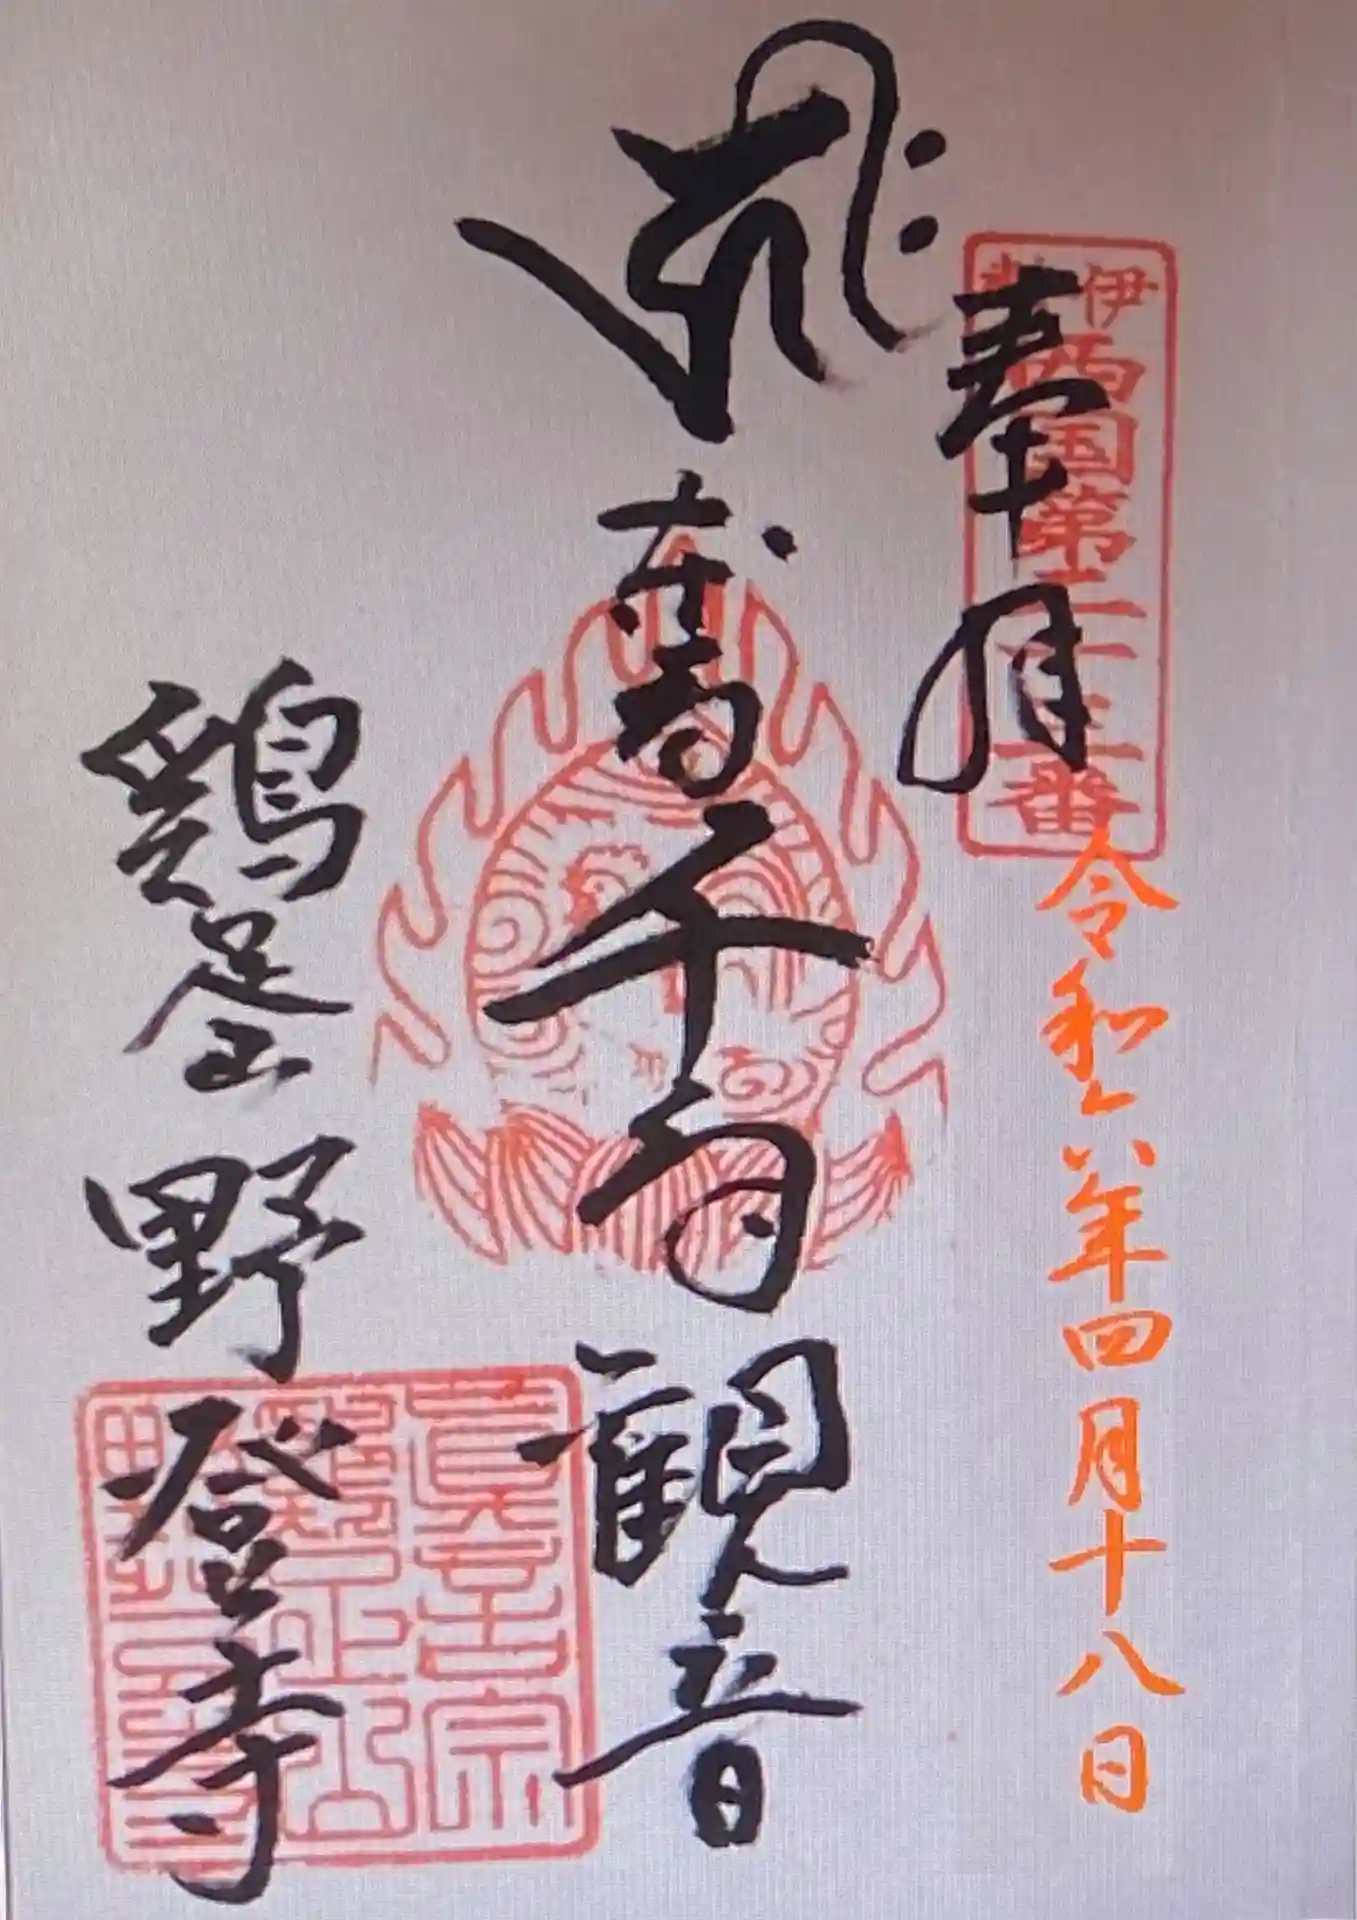 伊勢
西国第二十三番
奉拝
令和六年四月十八日
本尊千手観音
鶏足山野登寺
眞言宗
鶏足山
野登寺